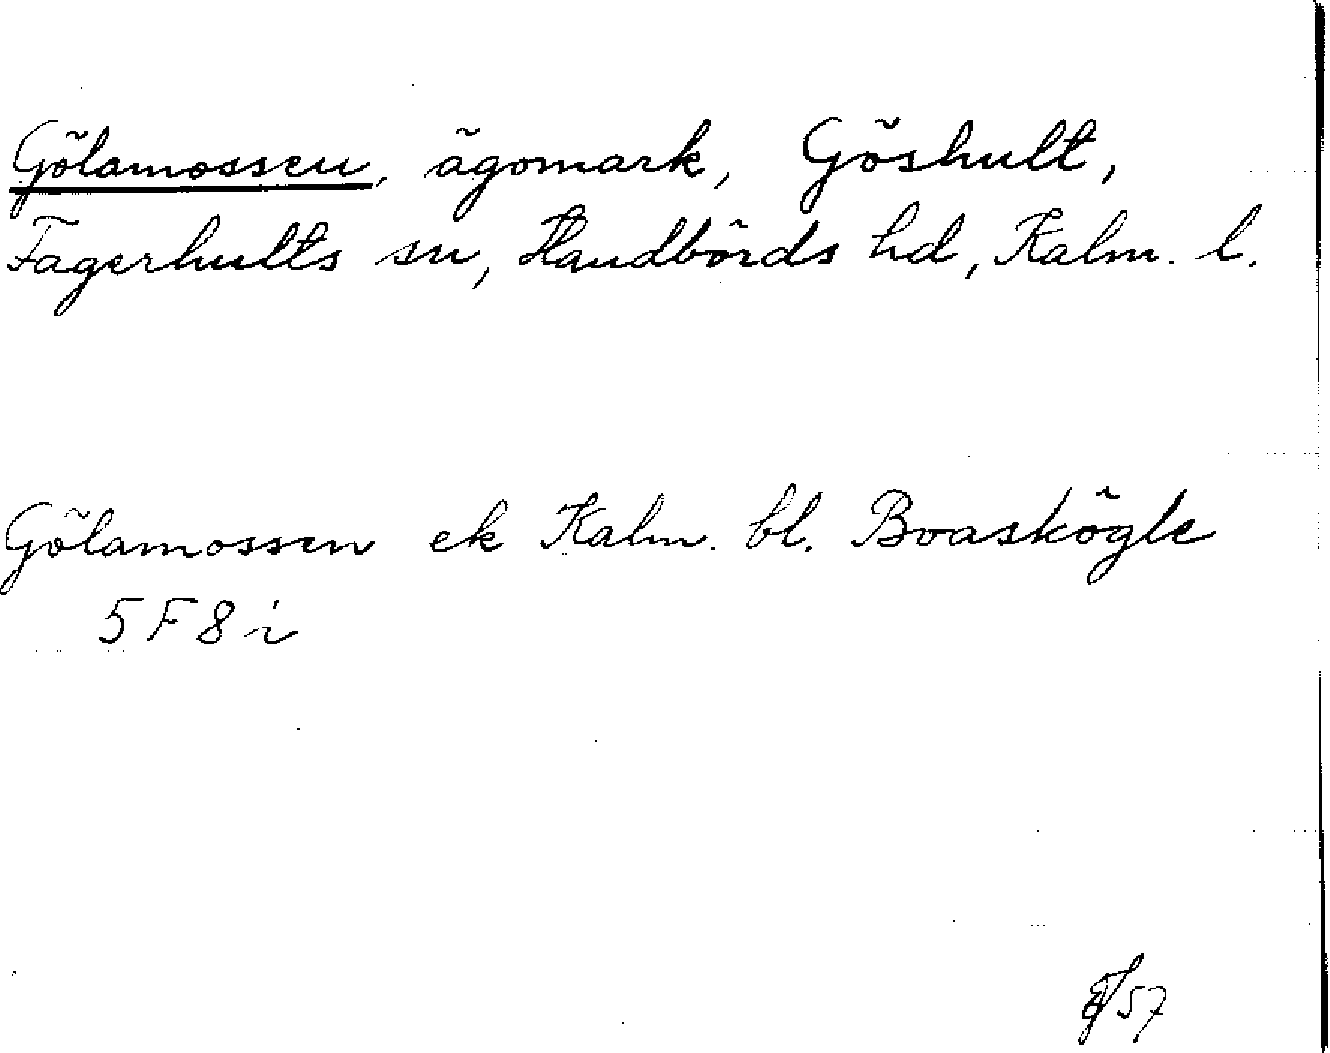 Gölamossen, ägomark, Göshult,
Fagerhults sn, Handbörds hd, Kalm. l.
Gölamossen ek Kalm. bl. Boaskögle
5F8i
57